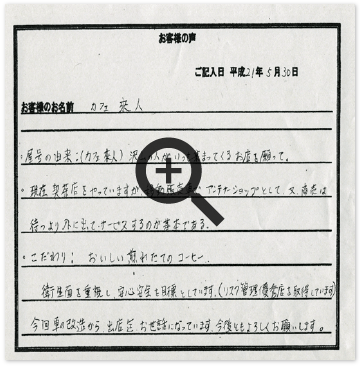 お客様の声
ご記入日 平成21年5月30日
お客様のお名前 カフェ 楽人
・屋号の由来:(カフェ楽人) 沢山の人が 集まってくるお店を願って。
・現在 喫茶店をやっていますが アンテナショップとして 又、商売は
待つより外に出てサービスするのが基本である。
・こだわり: おいしい煎れたてのコーヒー
衛生面を重視し、安心安全を目標としています。(リスク管理優良店を取得しています)
今回車の改造から 出店迄 お世話になっています。今後ともよろしくお願いします。